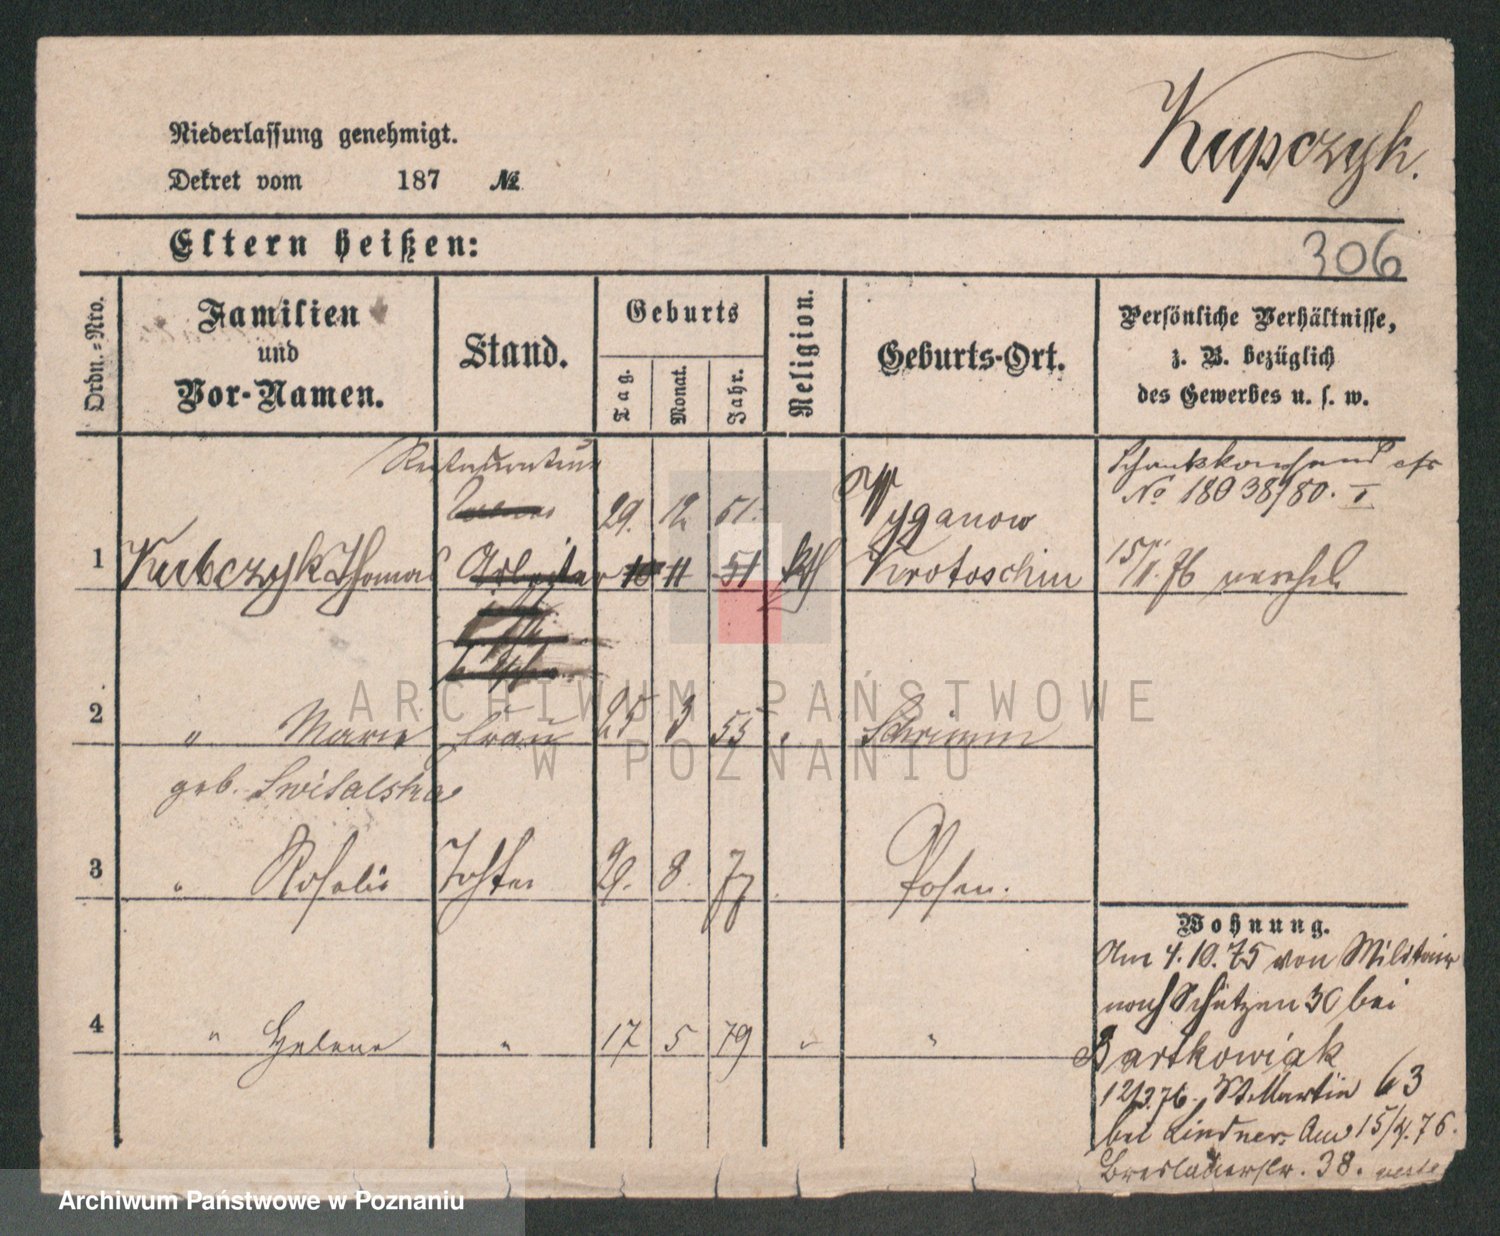 Kupczyk.
Niederlassung genehmigt.
Dekret vom 187 №
306
Eltern heißen:
Ordn.-Nro.
Familien
und
Vor-Namen.
Stand.
Geburts
Tag.
Monat.
Jahr.
Religion.
Geburts-Ort.
Persönliche Verhältnisse,
z. B. bezüglich
des Gewerbes u. s. w.
Restaurateur
29. 12 51. Wyganow
№ 18038/80. I
1 Kubczyk Thomas Arbeiter 10 11 51 kth Krotoschin
15/II.76 verehel.
2 " Marie Frau 25 3 55 " Schrimm
geb. Switalska
3 " Rosalie Tochter 29. 8. 77 Posen.
4 " Helene " 17 5 79 " "
Wohnung.
Am 4.10.75 von Militair
nach Schützen 30 bei
Bartkowiak
12/3.76. St. Martin 63
bei Lindner. Am 15/4.76.
Breslauerstr. 38.
ARCHIWUM PAŃSTWOWE
W POZNANIU
Archiwum Państwowe w Poznaniu